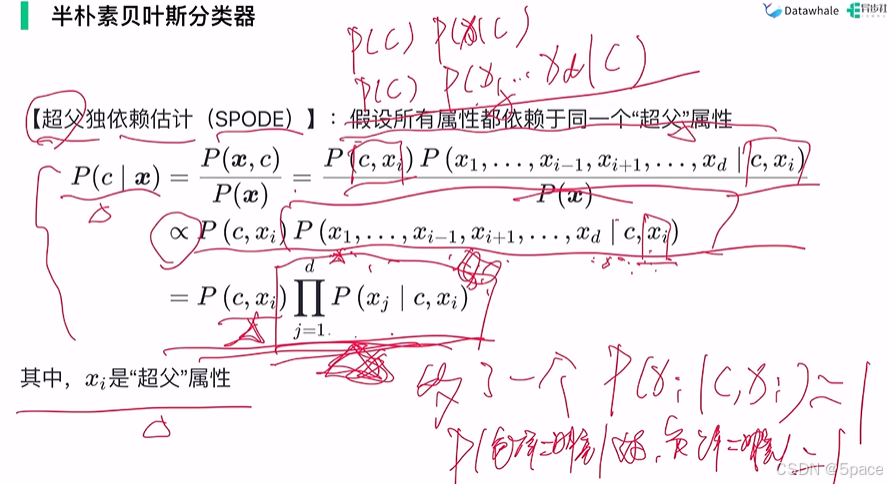 半朴素贝叶斯分类器
Datawhale 异步社
P(C) P(x|C)
P(C) P(x₁,…xd|C)
【超父独依赖估计（SPODE）】：假设所有属性都依赖于同一个“超父”属性
P(c | x) = P(x, c) / P(x) = P(c, xᵢ) P(x₁, . . . , xᵢ₋₁, xᵢ₊₁, . . . , x_d | c, xᵢ) / P(x)
∝ P(c, xᵢ) P(x₁, . . . , xᵢ₋₁, xᵢ₊₁, . . . , x_d | c, xᵢ)
= P(c, xᵢ) ∏_{j=1}^{d} P(xⱼ | c, xᵢ)
其中，xᵢ是“超父”属性
多了一个 P(xᵢ|C,xᵢ) ≈ 1
CSDN @5pace